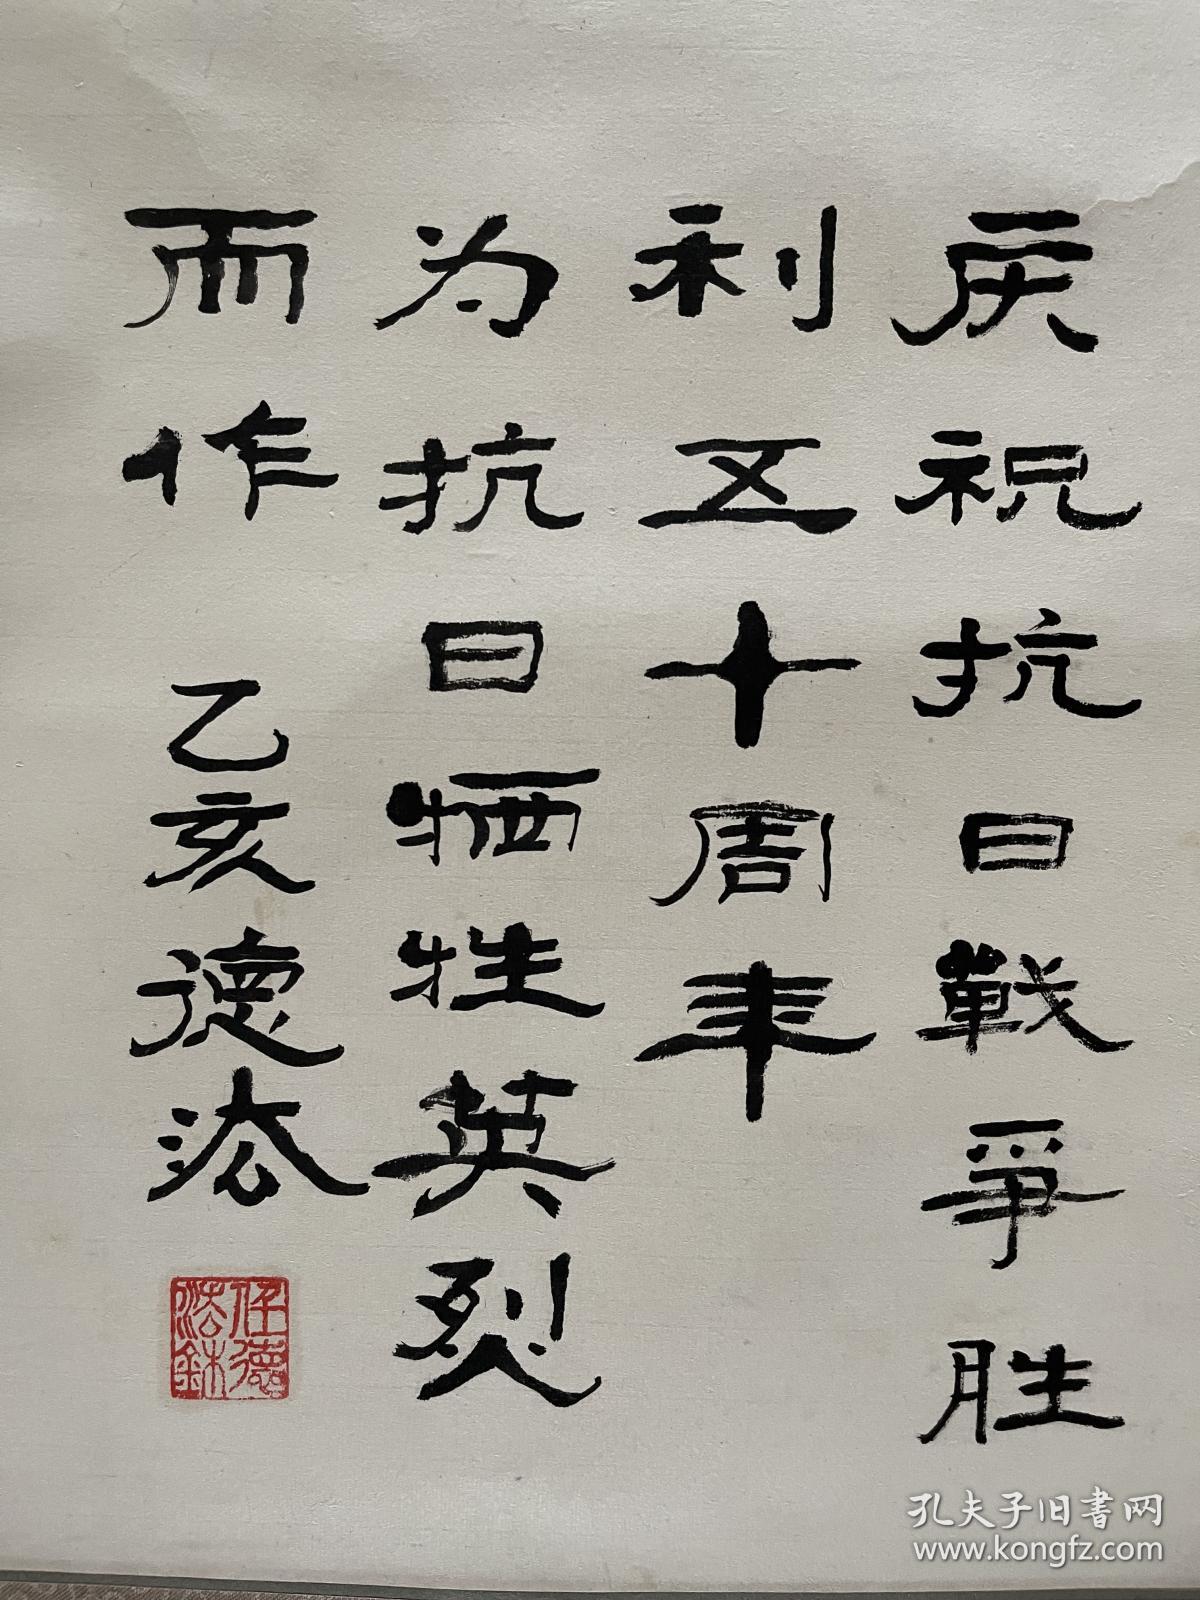 庆祝抗日戰爭胜
利五十周年
为抗日牺牲英烈
而作 乙亥德法
任德
法鉥
孔夫子旧书网
www.kongfz.com